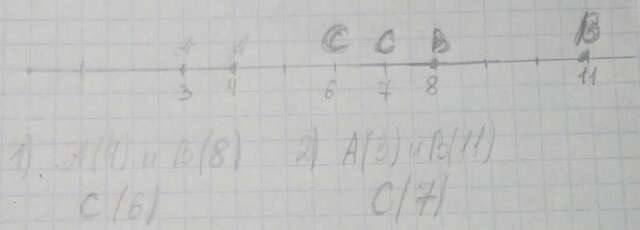 A A C C B B
3 4 6 7 8 11
1) A(4) и B(8) 2) A(3) и B(11)
C(6) C(7)